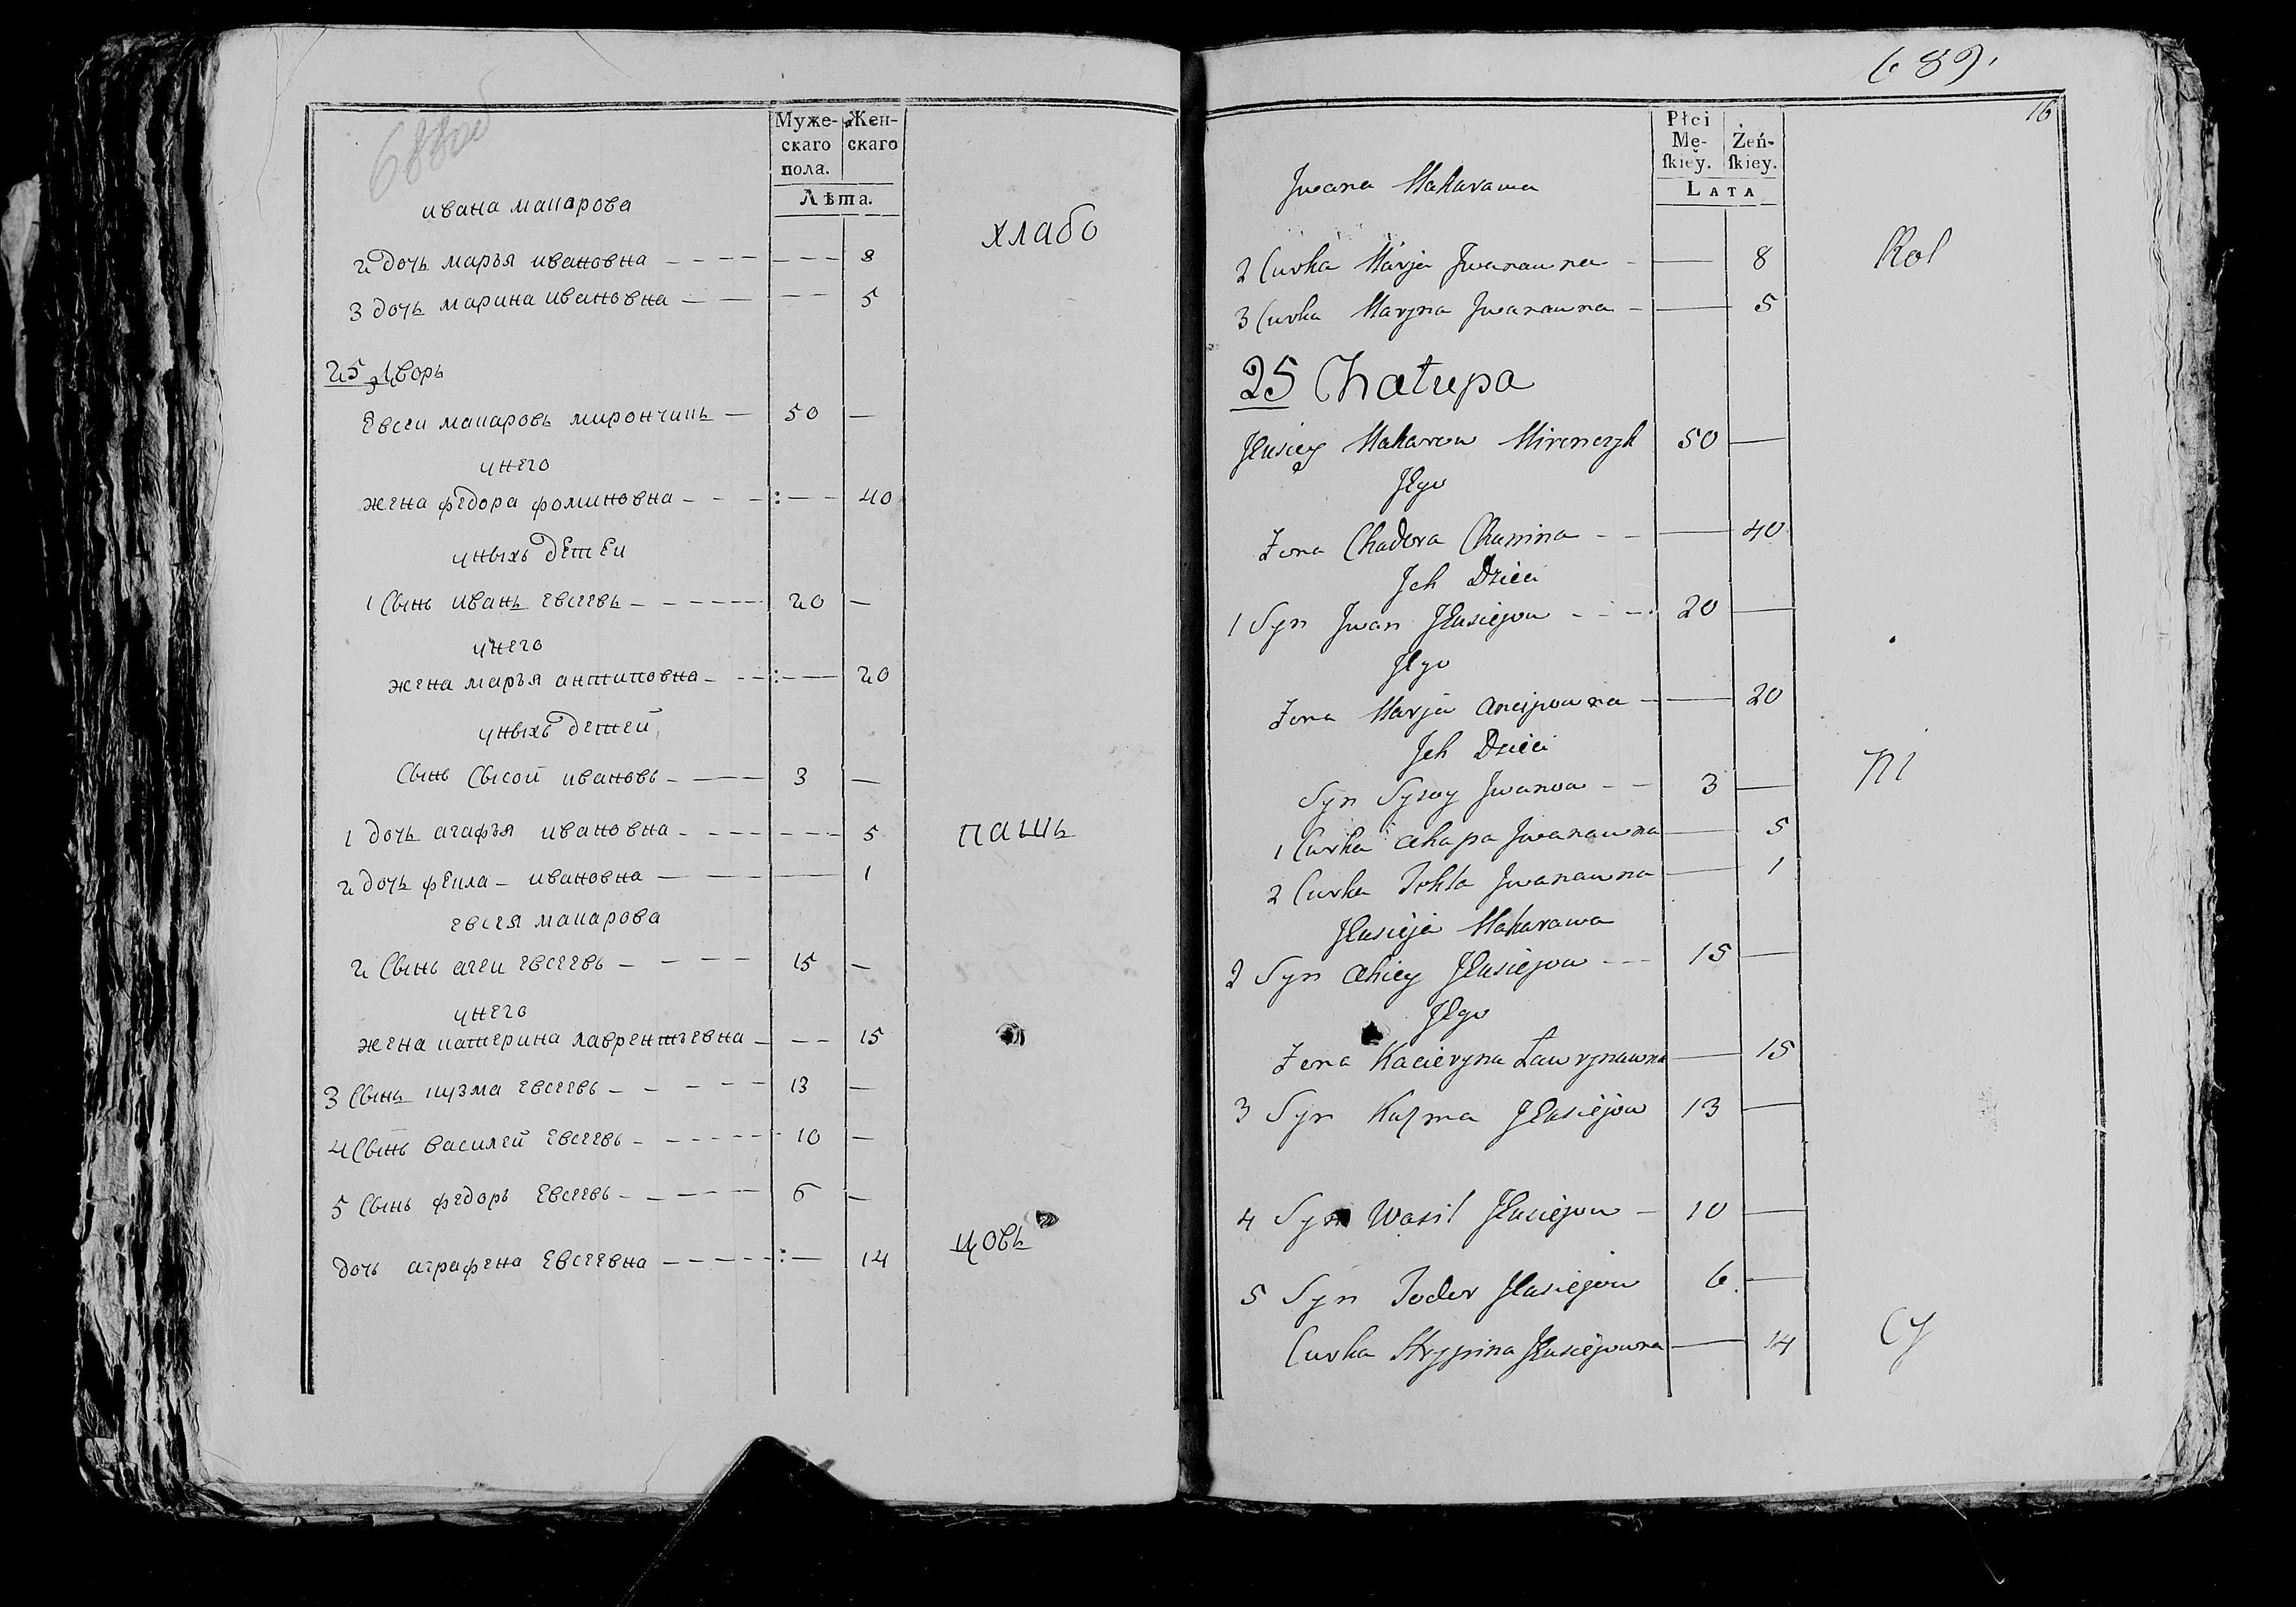 688об
Муже-
скаго
пола.
Жен-
скаго
Лѣта.
ивана макарова
хлабо
2 дочь марья ивановна — — — 8
3 дочь марина ивановна — — — 5
25 Дворь
Евсеи макаровь мирончикь — 50 —
унего
жена федора фоминовна — — — 40
уныхь детеи
1 Сынь ивань евсеевь — — — 20 —
унего
жена марья антиповна — — — 20
уныхь детей
Сынь Сысой ивановь — — 3 —
1 дочь агафья ивановна — — — 5
пашь
2 дочь фекла — ивановна — — 1
евсея макарова
2 Сынь агеи евсеевь — — — 15 —
унего
жена катерина лаврентьевна — — — 15
3 Сынь кузма евсеевь — — — 13 —
4 Сынь василей евсеевь — — — 10 —
5 Сынь федорь Евсеевь — — — 6 —
цовь
дочь аграфена Евсеевна — — — 14
689
16
Płci
Mę-
ſkiey.
Żeń-
ſkiey.
LATA
Jwana Makarawa
2 Curka Marja Jwanawna — — 8
Rol
3 Curka Maryna Jwanawna — — 5
25 Chałupa
Jewsiey Makarow Mironczyk 50 —
Jego
Zona Chadora Chamina — — 40
Jch Dzieci
1 Syn Jwan Jewsiejow — — 20 —
Jego
Zona Marja Ancipowna — — 20
Jch Dzieci
ni
Syn Sysoy Jwanow — — 3 —
1 Curka Ahapa Jwanawna — 5
2 Curka Tekla Jwanawna — 1
Jewsieja Makarawa
2 Syn Ahiey Jewsiejow — — 15 —
Jego
Zona Kacieryna Ławrynawna — 15
3 Syn Kuzma Jewsiejow 13 —
4 Syn Wasil Jewsiejow — 10 —
5 Syn Fodor Jewsiejow 6 —
cy
Curka Hrypina Jewsiejowna — 14